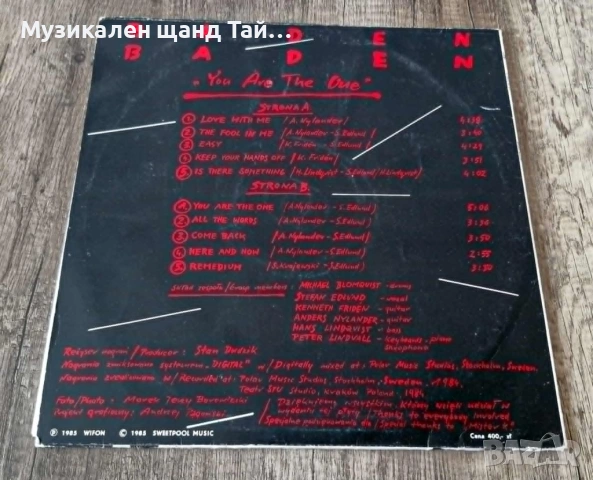 Музикален щанд Тай...
BADEN
BADEN
"You Are The One"
STRONA A
1 LOVE WITH ME /A. Nylander/ 4:38
2 THE FOOL IN ME /A. Nylander - S. Edlund/ 3:40
3 EASY /K. Friden - S. Edlund/ 4:29
4 KEEP YOUR HANDS OFF /K. Friden/ 3:51
5 IS THERE SOMETHING /H. Lindqvist - S. Edlund/H. Lindqvist/ 4:02
STRONA B
1 YOU ARE THE ONE /A. Nylander - S. Edlund/ 5:06
2 ALL THE WORDS /A. Nylander - S. Edlund/ 3:30
3 COME BACK /A. Nylander - S. Edlund/ 3:50
4 HERE AND NOW /A. Nylander - S. Edlund/ 2:55
5 REMEDIUM /S. Krajewski - S. Edlund/ 3:50
skład zespołu/Group members: MICHAEL BLOMQVIST - drums
STEFAN EDLUND - vocal
KENNETH FRIDEN - guitar
ANDERS NYLANDER - guitar
HANS LINDQVIST - bass
PETER LINDVALL - keyboards, piano
saxophone
Reżyser nagrań / Producer: Stan Dudzik
Nagrania zmiksowano systemem "DIGITAL" w/Digitally mixed at: Polar Music Studios, Stockholm, Sweden.
Nagrania zrealizowano w/Recorded at: Polar Music Studios, Stockholm, Sweden. 1984.
Teatr STU Studio, Kraków Poland. 1984
Foto/Photo: Marek Jerzy
Projekt graficzny: Andrzej
Dziękujemy wszystkim którzy wzięli udział w
wydaniu tej płyty / Thanks to everybody involved
Specjalne podziękowania dla / Special thanks to "Mister K"
Ⓟ 1985 WIFON © 1985 SWEETPOOL MUSIC
Cena 400,- zł